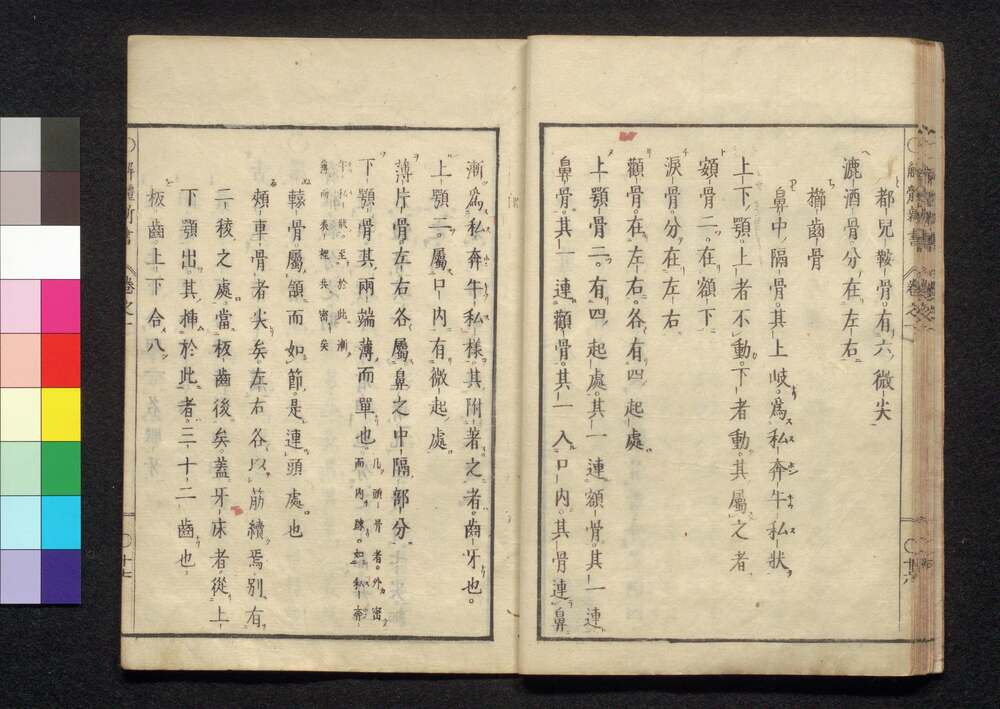 都兒鞍骨。有六微尖
漉酒骨。分在左右
櫛齒骨
鼻中隔骨。其上岐。爲私奔牛私狀
上下顎。上者不動。下者動。其屬之者
額骨二。在額下
淚骨。分在左右
顴骨。在左右。各有四起處
上顎骨二。有四起處。其一連額骨。其一連
鼻骨。其一連顴骨。其一入口内。其骨連鼻
漸爲私奔牛私樣。其附著之者。齒牙也。
上顎二。屬口内。有微起處
薄片骨。左右各屬鼻之中隔部分
下顎骨。其兩端薄而單也。凡頭骨者。外密而内踈。如私奔
牛私狀。至於此漸薄而表裡共密矣
轅骨。屬頷。而如節。是連頭處也
頰車骨者。尖矣。左右各以筋續焉。別有
二稜之處。當板齒後矣。蓋牙床者。從上
下顎出。其挿於此者。三十二齒也
板齒。上下合八
解體新書
卷之一
十七
解體新書
卷之一
十六